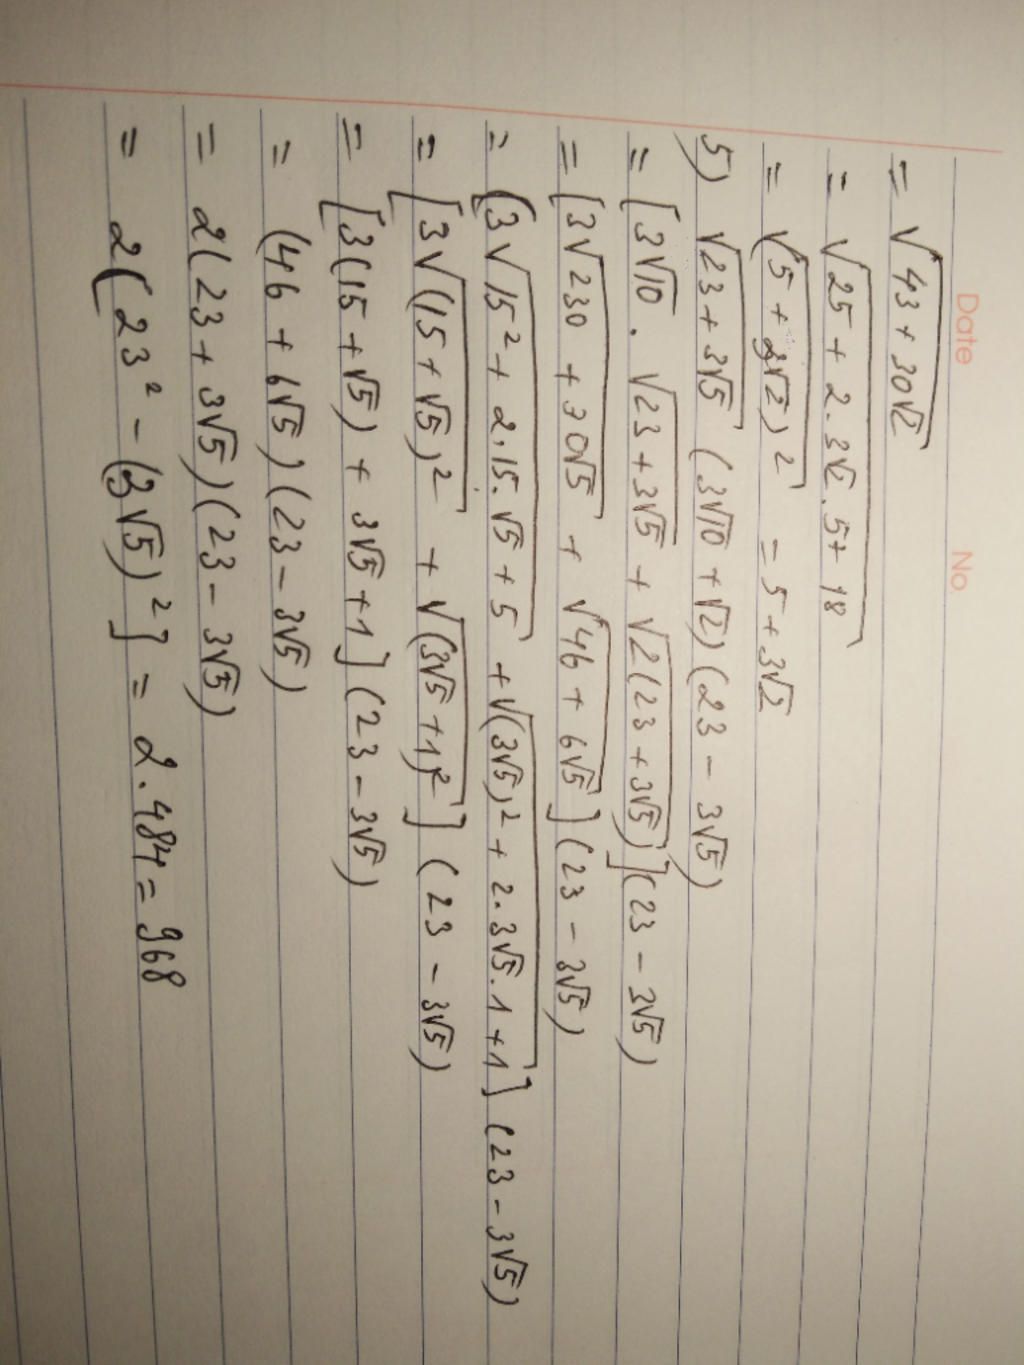 Date No.
= √(43 + 30√2)
= √(25 + 2.3√2.5 + 18)
= √((5 + 3√2)²) = 5 + 3√2
5) √(23 + 3√5) (3√10 + √2)(23 - 3√5)
= [3√10 . √(23 + 3√5) + √(2(23 + 3√5))](23 - 3√5)
= [3√(230 + 30√5) + √(46 + 6√5)](23 - 3√5)
= (3√(15² + 2.15.√5 + 5) + √((3√5)² + 2.3√5.1 + 1)](23 - 3√5)
= [3√((15 + √5)²) + √((3√5 + 1)²)](23 - 3√5)
= [3(15 + √5) + 3√5 + 1](23 - 3√5)
= (46 + 6√5)(23 - 3√5)
= 2(23 + 3√5)(23 - 3√5)
= 2(23² - (3√5)²] = 2.484 = 968